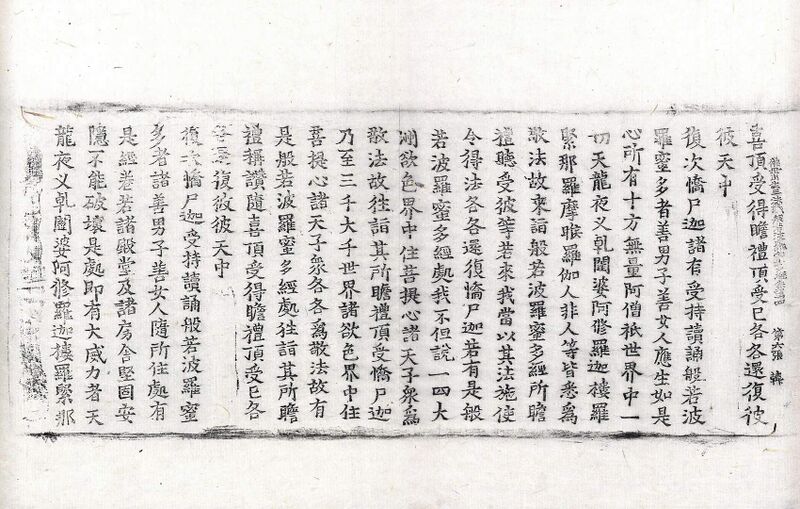 第六張
喜頂受得瞻禮頂受已各各還復彼
彼天中
復次憍尸迦諸有受持讀誦般若波
羅蜜多者善男子善女人應生如是
心所有十方無量阿僧祇世界中一
切天龍夜叉乹闥婆阿脩羅迦樓羅
緊那羅摩睺羅伽人非人等皆悉爲
敬法故來詣般若波羅蜜多經所瞻
禮聽受彼等若來我當以其法施使
令得法各各還復憍尸迦若有是般
若波羅蜜多經處我不但說一四大
洲欲色界中住菩提心諸天子衆爲
敬法故往詣其所瞻禮頂受憍尸迦
乃至三千大千世界諸欲色界中住
菩提心諸天子衆各各爲敬法故有
是般若波羅蜜多經處往詣其所瞻
禮稱讚隨喜頂受得瞻禮頂受已各
各還復彼彼天中
復次憍尸迦受持讀誦般若波羅蜜
多者諸善男子善女人隨所住處有
是經卷若諸殿堂及諸房舍堅固安
隱不能破壞是處即有大威力者天
龍夜叉乹闥婆阿修羅迦樓羅緊那